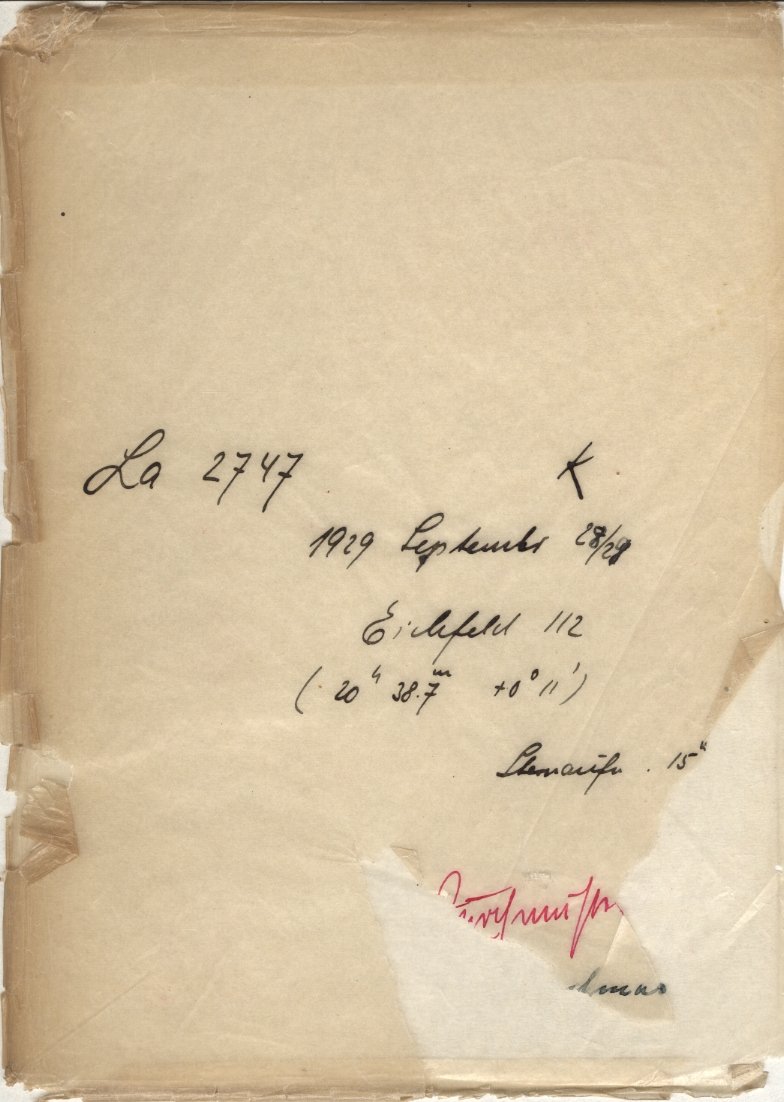 La 2747 K
1929 September 28/29
Eichfeld 112
( 20h 38.7m +0° 11' )
Sternaufn. 15"